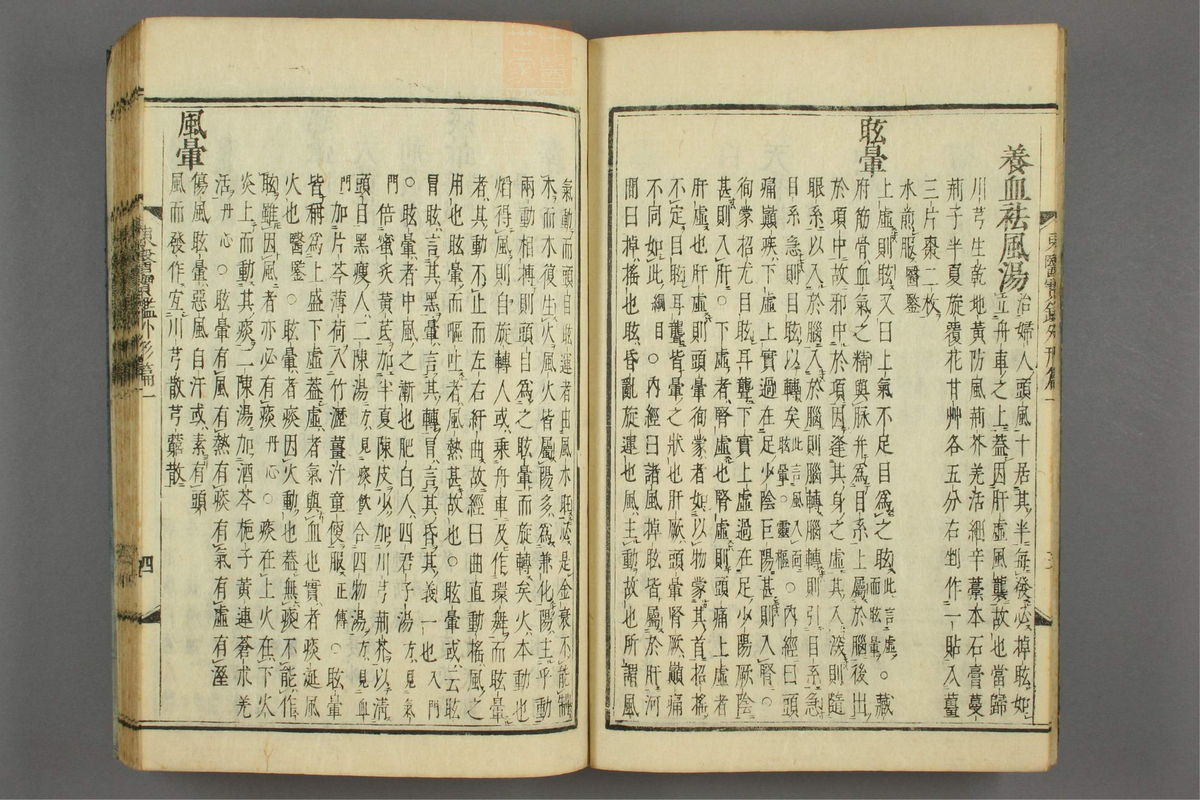 養血祛風湯
治婦人頭風十居其半每發必掉眩如
立舟車之上蓋因肝虛風襲故也當歸
川芎生乾地黃防風荊芥羌活細辛藁本石膏蔓
荊子半夏旋覆花甘艸各五分右剉作一貼入薑
三片棗二枚
水煎服醫鑒
眩暈
上虛則眩又曰上氣不足目爲之眩此言虛而眩暈○藏
府筋骨血氣之精與脉并爲目系上屬於腦後出
於項中故邪中於項因逢其身之虛其入深則隨
眼系以入於腦入於腦則腦轉腦轉則引目系急
目系急則目眩以轉矣此言風入而眩暈靈樞○內經曰頭
痛巓疾下虛上實過在足少陰巨陽甚則入腎○
徇蒙招尤目眩耳聾下實上虛過在足少陽厥陰
甚則入肝下虛者腎虛也腎虛則頭痛上虛者
肝虛也肝虛則頭暈徇蒙者如以物蒙其首招搖
不定目眩耳聾皆暈之狀也肝厥頭暈腎厥巓痛
不同如此綱目○內經曰諸風掉眩皆屬於肝河
間曰掉搖也眩昏亂旋運也風主動故也所謂風
東醫寶鑑外形篇一
氣動而頭自眩運者由風木旺必是金衰不能制
木而木復生火風火皆屬陽多爲兼化陽主乎動
兩動相搏則頭目爲之眩暈而旋轉矣火本動也
焰得風則自旋轉人或乘舟車及作環舞而眩暈
者其動不止而左右紆曲故經曰曲直動搖風之
用也眩暈而嘔吐者風熱甚故也○眩暈或云眩
冒眩言其黑暈言其轉冒言其昏其義一也入門
○眩暈者中風之漸也肥白人四君子湯方見氣
門倍蜜炙黃芪加半夏陳皮少加川芎荊芥以淸
頭目黑瘦人二陳湯方見痰飮合四物湯方見血
門加片芩薄荷入竹瀝薑汁童便服正傳○眩暈
皆稱爲上盛下虛蓋虛者氣與血也實者痰涎風
火也醫鑒○眩暈者痰因火動也蓋無痰不能作
眩雖因風者亦必有痰丹心○痰在上火在下火
炎上而動其痰二陳湯加酒芩梔子黃連蒼朮羌
活丹心○眩暈有風有熱有痰有氣有虛有溼
風暈
傷風眩暈惡風自汗或素有頭
風而發作宜川芎散芎藭散
東醫寶鑑外形篇一
四